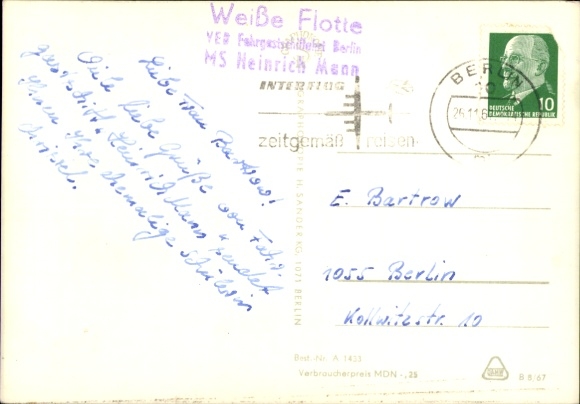 Weiße Flotte
VEB Fahrgastschiffahrt Berlin
MS Heinrich Mann
INTERFLUG
zeitgemäß reisen
BERLIN
10
DEUTSCHE
DEMOKRATISCHE REPUBLIK
Liebe Frau Bartrow!
Viele liebe Grüße vom Fahr-
gastschiff Heinrich Mann sendet
Ihnen Ihre ehemalige Schülerin
E. Bartrow
1055 Berlin
Kollwitzstr. 10
H. SANDERKG, 1071 BERLIN
Best.-Nr. A 1433
Verbraucherpreis MDN -,25
B 8/67